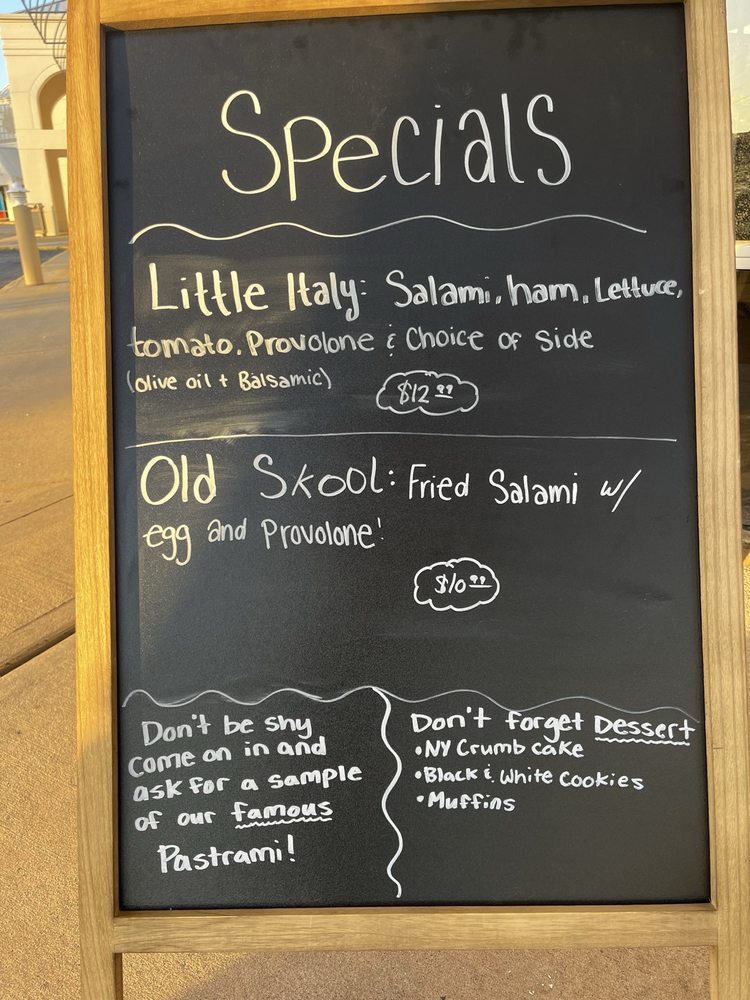 Specials
Little Italy: Salami, ham, Lettuce,
tomato, Provolone & Choice of Side
(olive oil + Balsamic)
$12.99
Old Skool: Fried Salami w/
egg and Provolone!
$10.99
Don't be shy
come on in and
ask for a sample
of our famous
Pastrami!
Don't forget Dessert
•NY Crumb cake
•Black & White Cookies
•Muffins